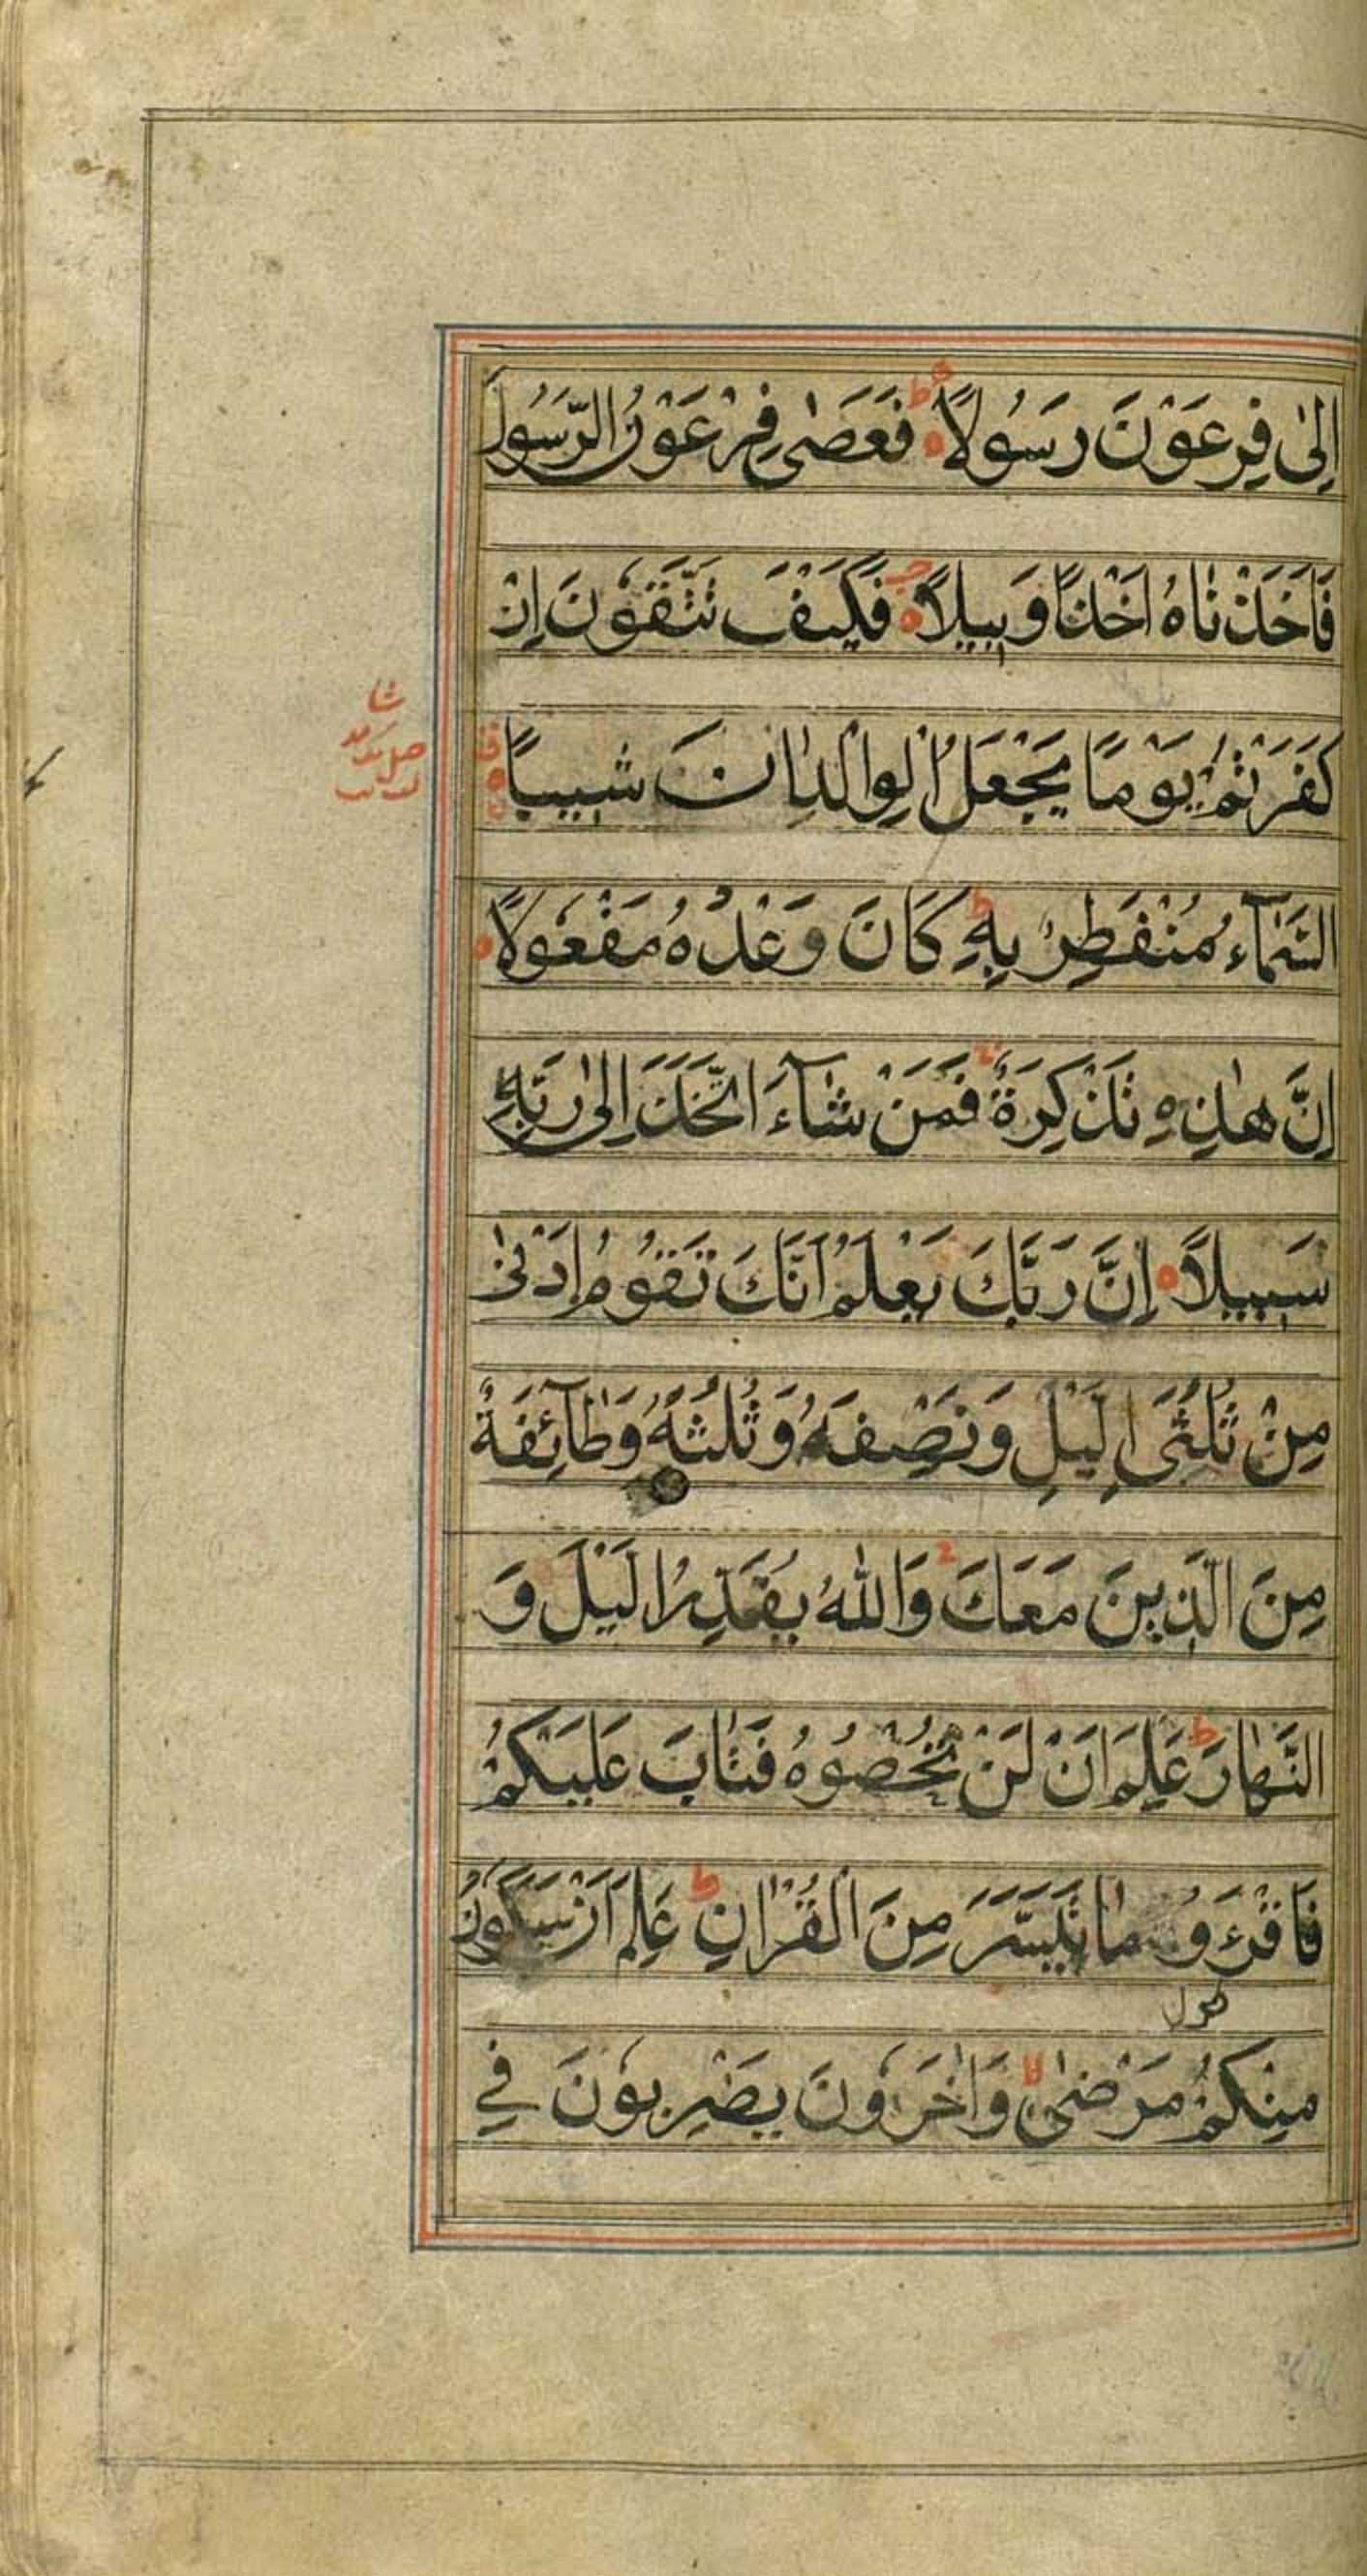 اِلٰى فِرْعَوْنَ رَسُولًا فَعَصٰى فِرْعَوْنُ الرَّسُولَ
فَاَخَذْنَاهُ اَخْذًا وَبِيلًا فَكَيْفَ تَتَّقُونَ اِنْ
كَفَرْتُمْ يَوْمًا يَجْعَلُ الْوِالْدِانَ شِيبًا
السَّمَآءُ مُنْفَطِرٌ بِهٖ كَانَ وَعْدُهُ مَفْعُولًا
اِنَّ هٰذِهِ تَذْكِرَةٌ فَمَنْ شَآءَ اتَّخَذَ اِلٰى رَبِّهِ
سَبِيلًا اِنَّ رَبَّكَ يَعْلَمُ اَنَّكَ تَقُومُ اَدْنٰى
مِنْ ثُلُثَىِ الَّيْلِ وَنِصْفَهُ وَثُلُثَهُ وَطَآئِفَةٌ
مِنَ الَّذِينَ مَعَكَ وَاللّٰهُ يُقَدِّرُ الَّيْلَ وَ
النَّهَارَ ط عَلِمَ اَنْ لَنْ تُحْصُوهُ فَتَابَ عَلَيْكُمْ
فَاقْرَءُو مَا تَيَسَّرَ مِنَ الْقُرْاٰنِ ط عَلِمَ اَنْ سَيَكُونُ
مِنْكُمْ مَرْضٰى لا وَاٰخَرُونَ يَضْرِبُونَ فِي